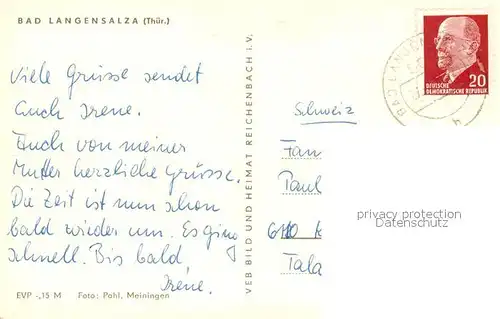 BAD LANGENSALZA (Thür.)
Viele Grüsse sendet
Euch Irene.
Auch von meiner
Mutter herzliche Grüsse.
Die Zeit ist nun schon
bald wieder um. Es ging
schnell. Bis bald
Irene.
EVP -,15 M Foto: Pahl, Meiningen
VEB BILD UND HEIMAT REICHENBACH I. V.
20
DEUTSCHE
DEMOKRATISCHE REPUBLIK
BAD LANGEN
Schweiz
Fam
Paul
Tala
privacy protection
Datenschutz